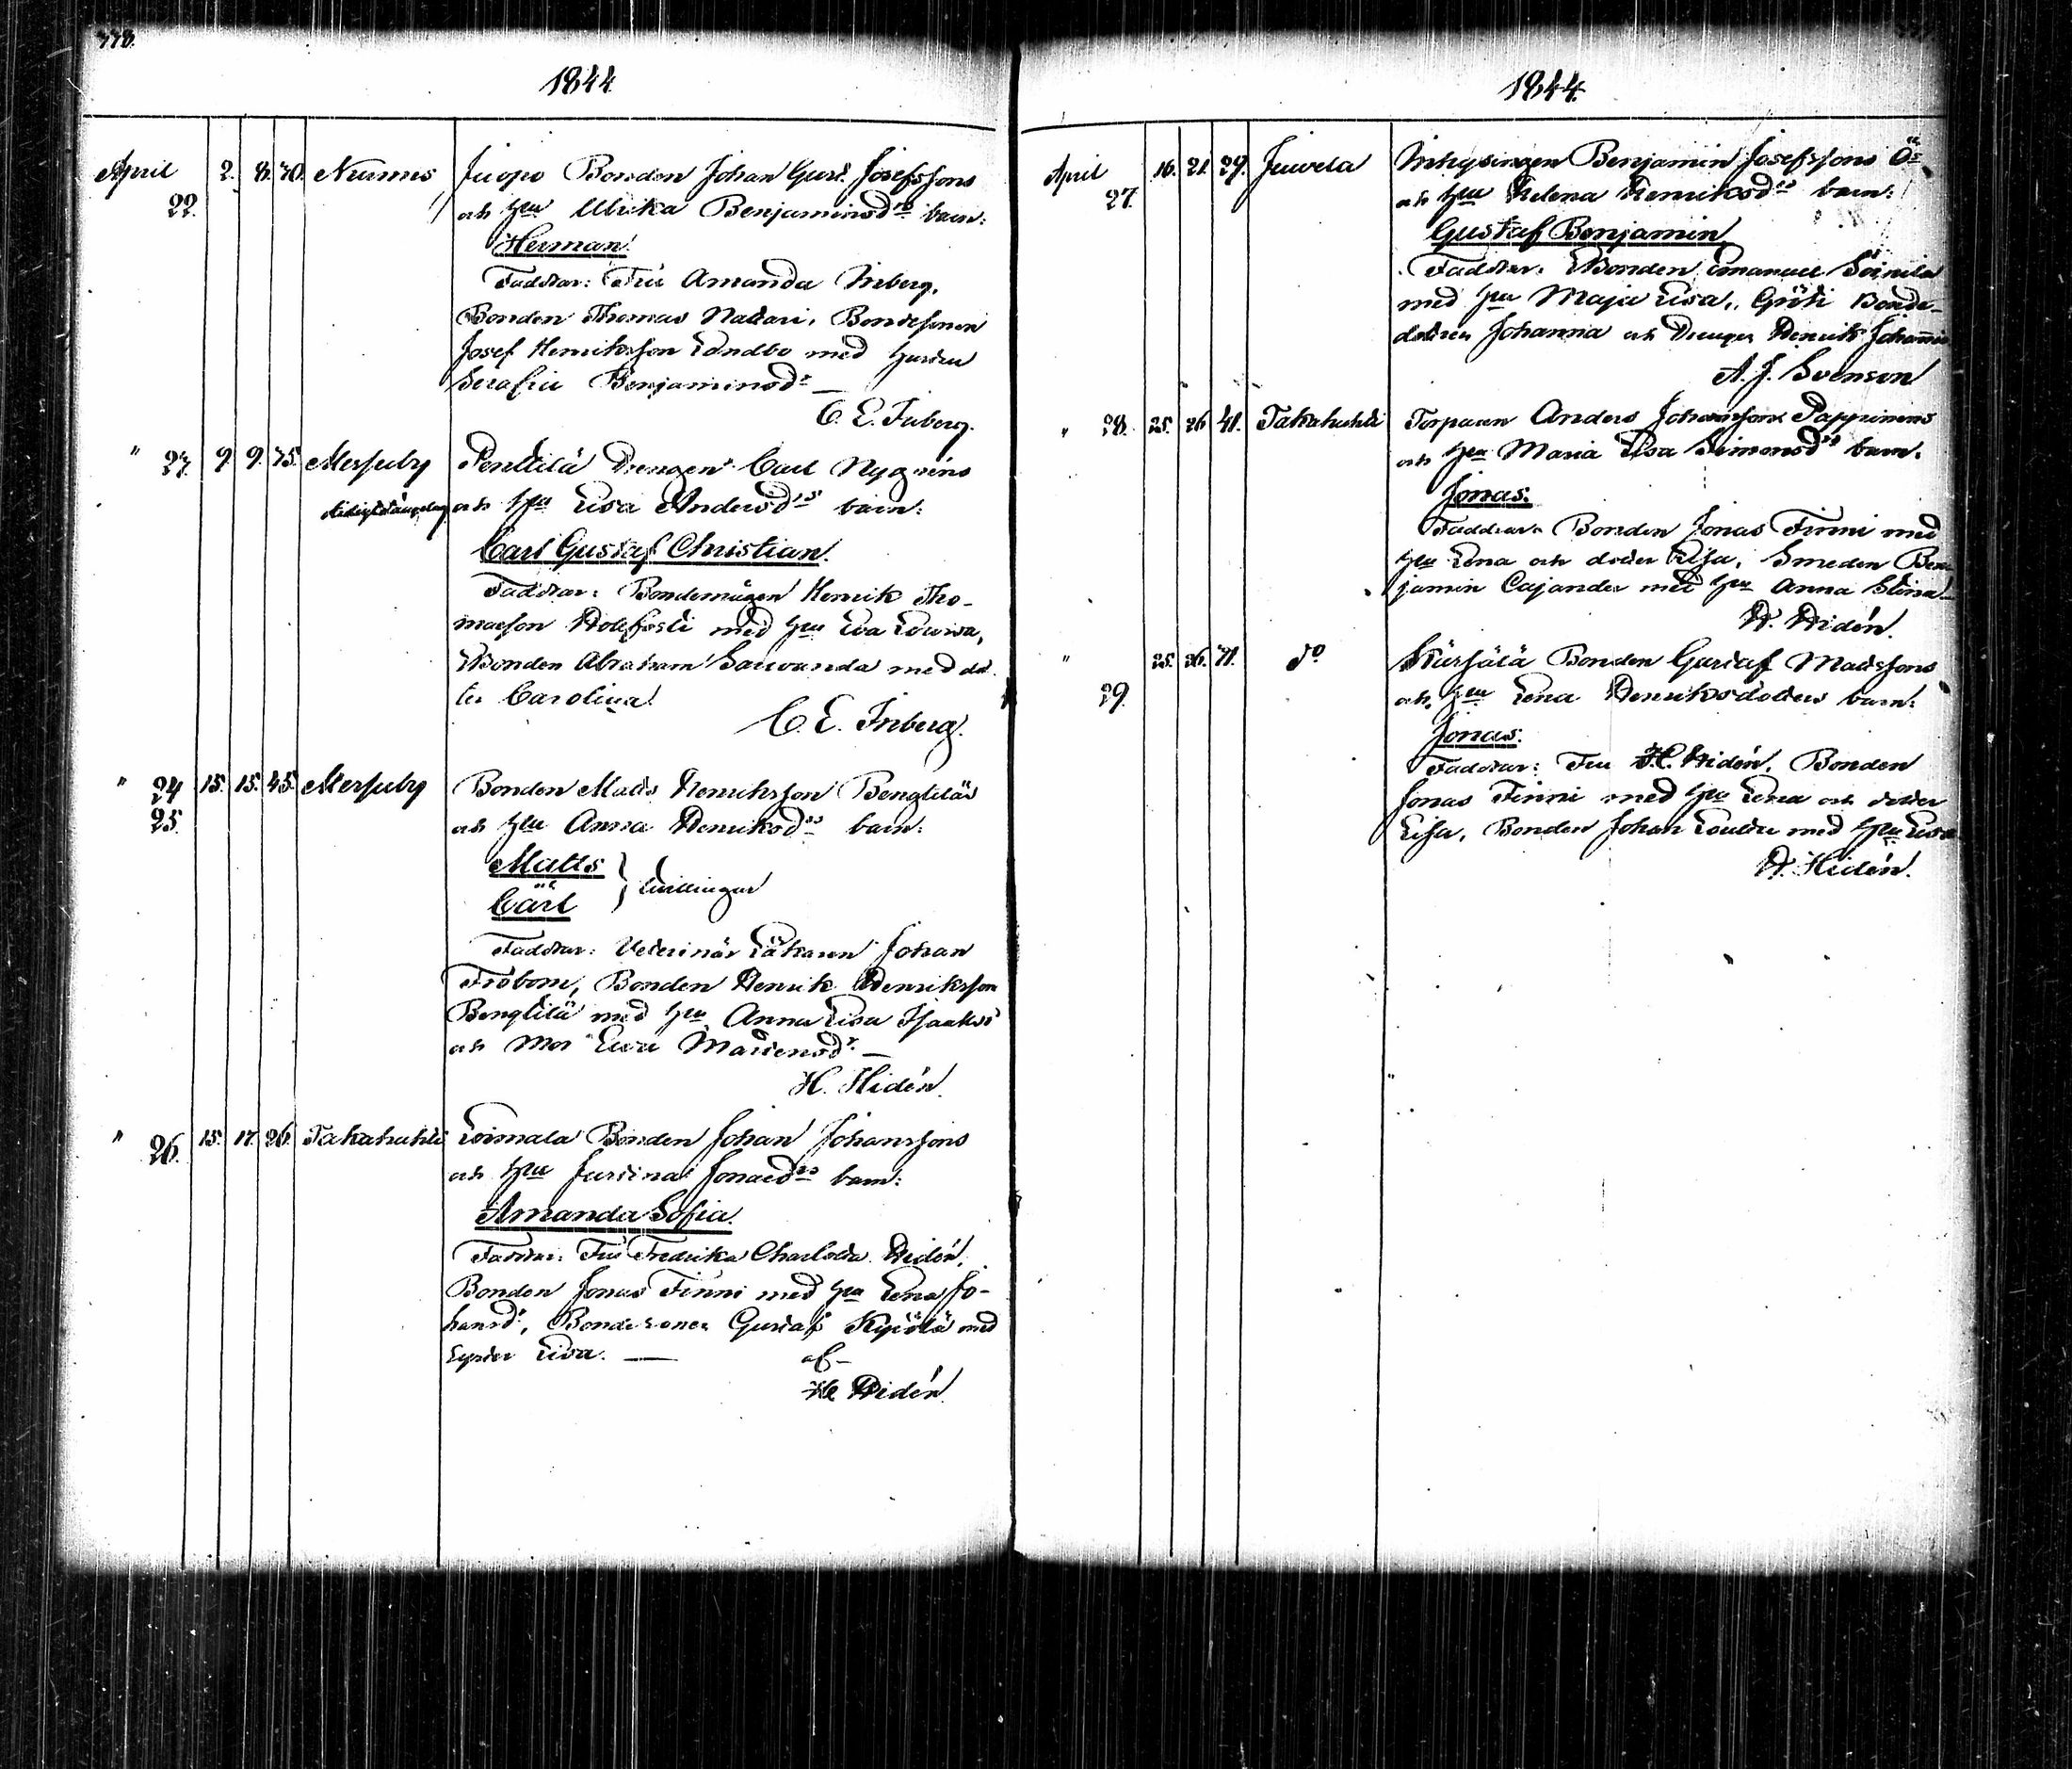 778.
1844
April 22. 2. 8. 70. Nummis Juopo Bonden Johan Gust. Josefssons
och hu Ulrika Benjaminsdrs barn:
Herman.
Faddrar: Fru Amanda Inberg,
Bonden Thomas Nattari, Bondesonen
Josef Henriksson Londbo med hustru
Serafia Benjaminsdr —
C. E. Inberg.
" 23. 9 9. 75. Mersuby Penttilä Drengen Carl Nygréns
och hu Lisa Andersdrs barn:
Carl Gustaf Christian.
Faddrar: Bondemågen Henrik Tho-
masson med hu Eva Lovisa,
Bonden Abraham Sarvanda med dot-
ter Carolina.
C. E. Inberg.
" 24 15. 15. 45. Mersuby Bonden Matts Henriksson Bengtiläs
25. och hu Anna Henriksdrs barn:
Matts
Carl } tvillingar
Faddrar: Veterinär Läkaren Johan
Fröbom, Bonden Henrik Henriksson
Bengtilä med hu Anna Lisa Isaaksd
och Mor Eva Mårtensdr —
H. Hidén.
" 26. 15. 17. 26. Takahuhti Loimala Bonden Johan Johanssons
och hu Justina Jonaedrs barn:
Amanda Sofia.
Faddrar: Fru Fredrika Charlotta Hidén,
Bonden Jonas Finni med hu Lena Jo-
hansdr, Bondesonen Gustaf Kyötä med
syster Lisa. — af —
H. Hidén.
1844.
April 27. 16. 21. 29. Juvela Inhysingen Benjamin Josefssons
och hu Helena Henriksdrs barn:
Gustaf Benjamin
Faddrar: Bonden Emanuel Soinila
med hu Maja Lisa, Bonde-
dottren Johanna och Drengen Henrik
A. J. Svenson
" 28. 25. 26 41. Takahuhti Torparen Anders Johanssons Pappinens
och hu Maria Lisa Simonsdrs barn.
Jonas.
Faddrar: Bonden Jonas Finni med
hu Lena och dotter Lisa, Smeden Ben-
jamin Cajander med hu Anna Stina —
H. Hidén.
" 29. 25. 26. 71. do Bonden Gustaf Mattssons
och hu Lena Henriksdotters barn:
Jonas.
Faddrar: Fru H. Hidén, Bonden
Jonas Finni med hu Lena och dotter
Lisa, Bonden Johan med hu Lisa
H. Hidén.